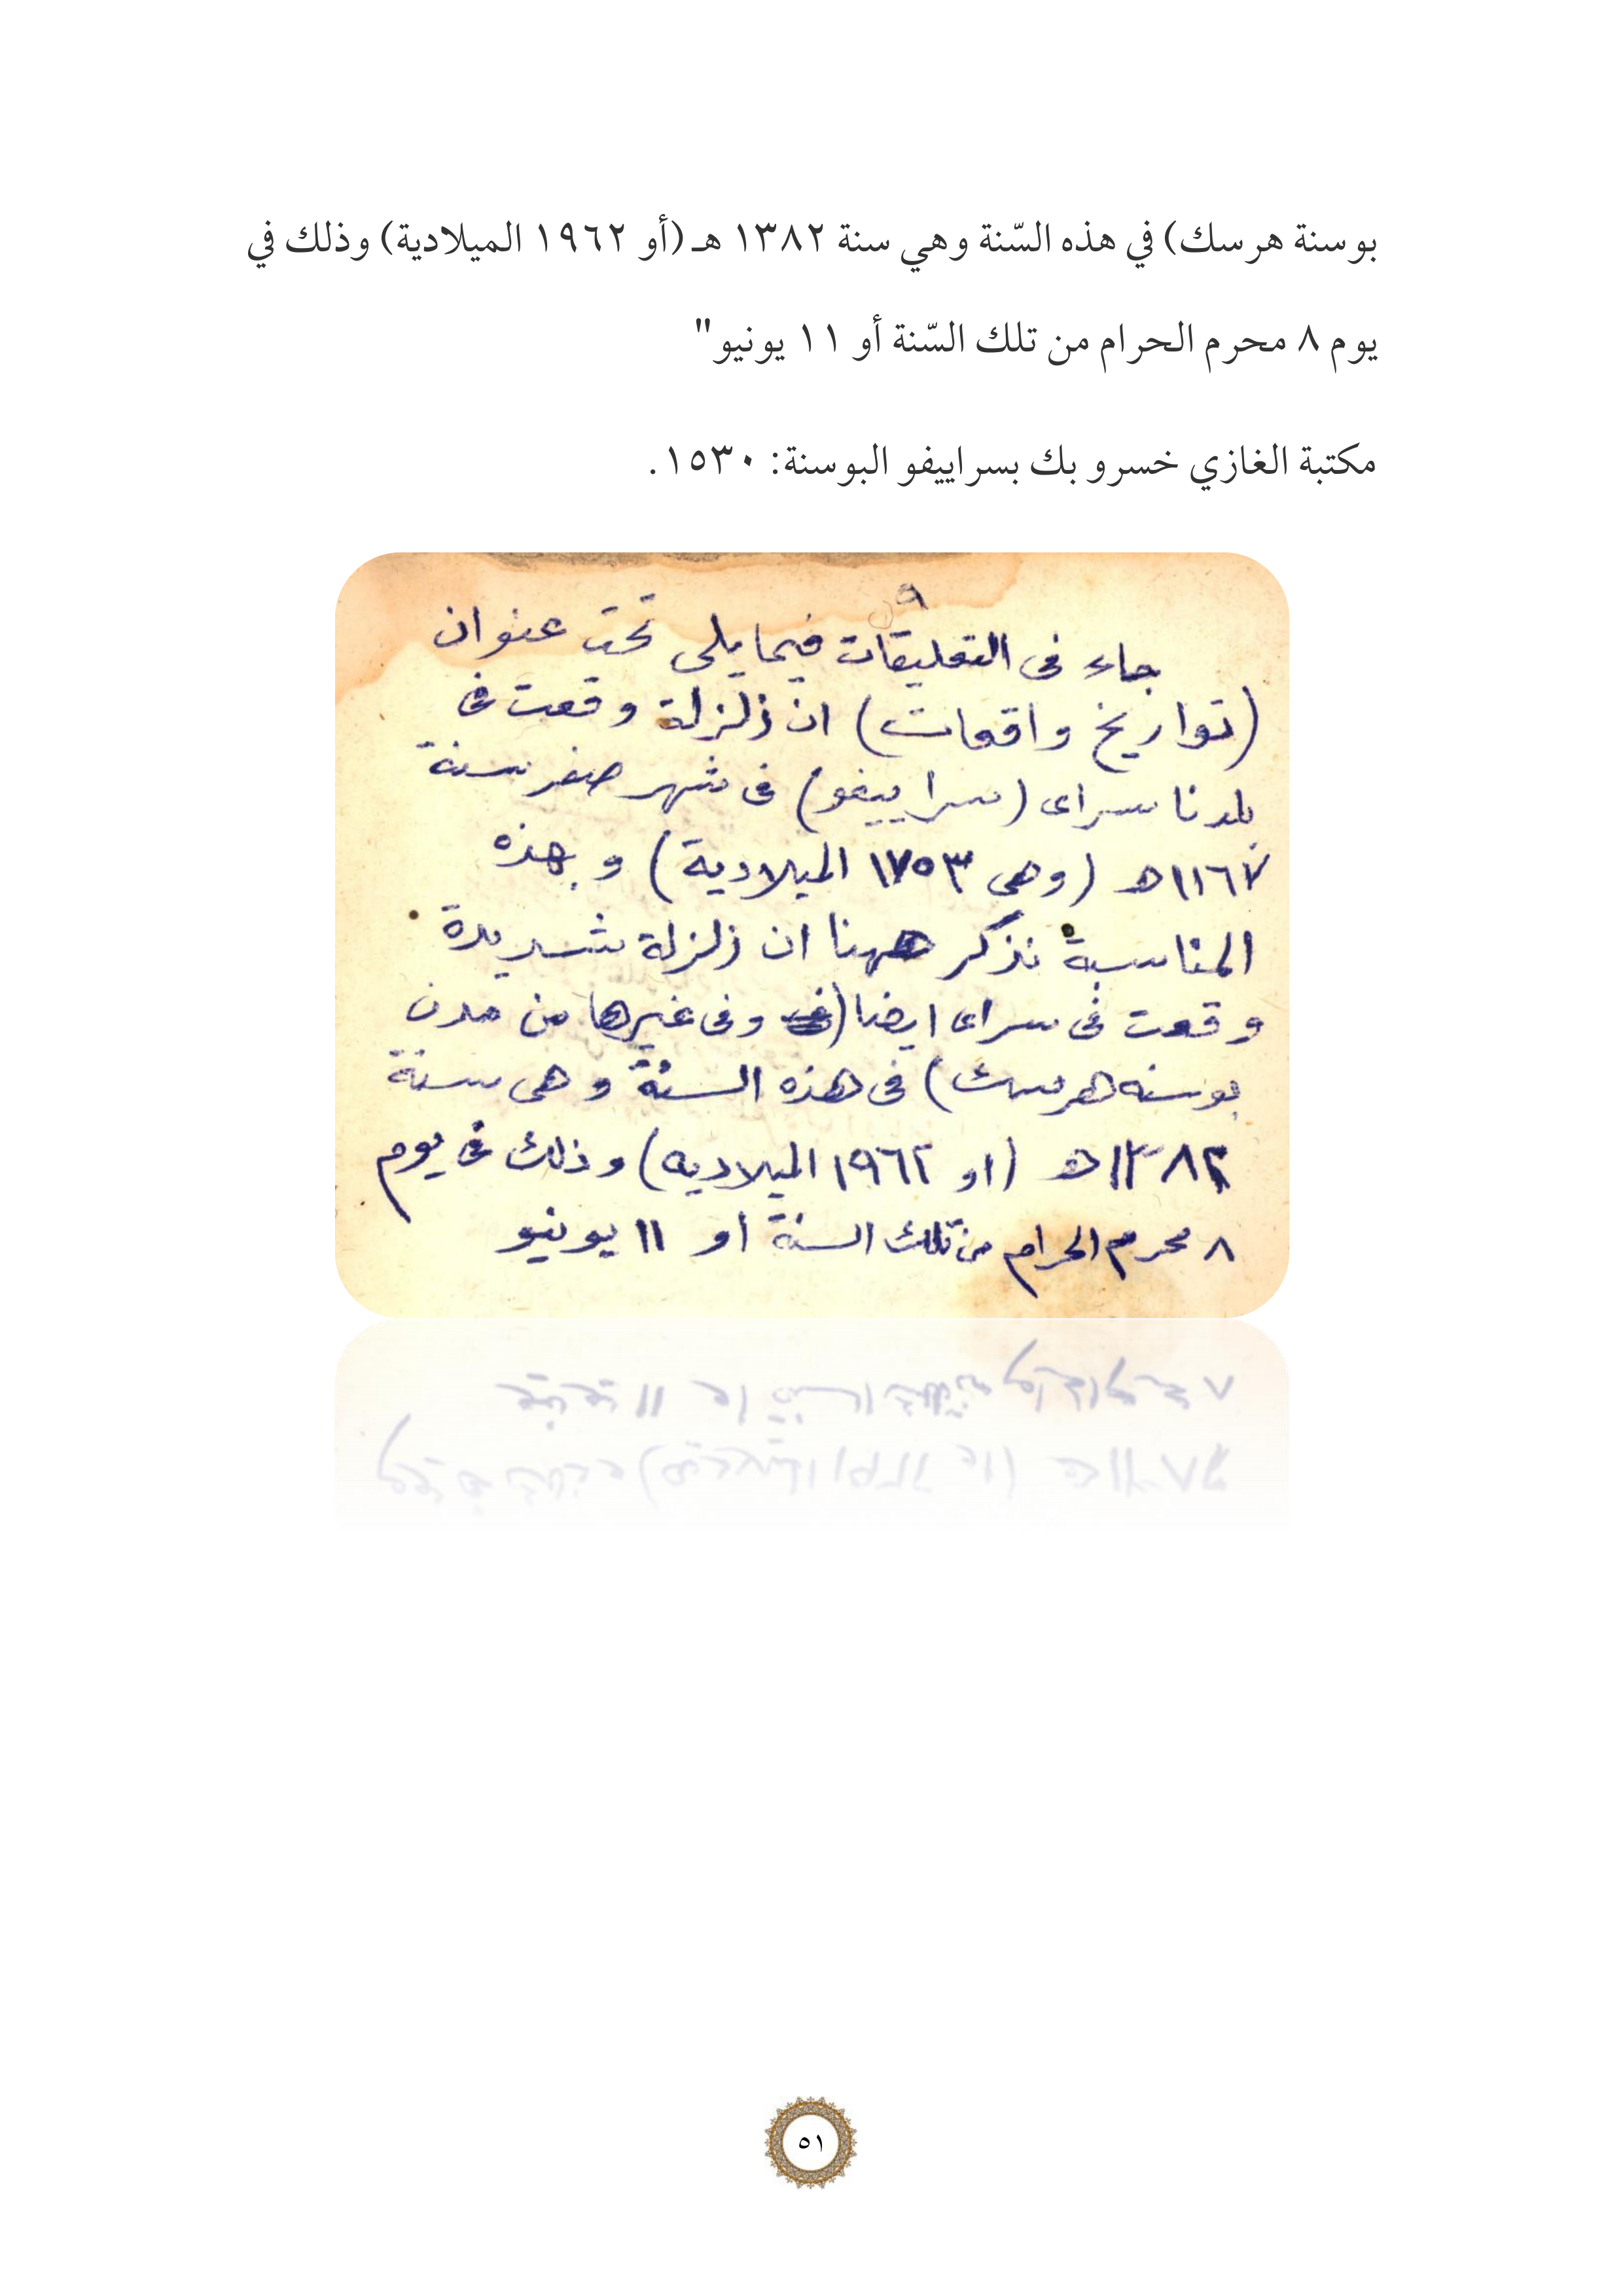 بوسنة هرسك) في هذه السّنة وهي سنة ١٣٨٢ هـ (أو ١٩٦٢ الميلادية) وذلك في
يوم ٨ محرم الحرام من تلك السّنة أو ١١ يونيو"
مكتبة الغازي خسرو بك بسراييفو البوسنة: ١٥٣٠.
٩
جاء فى التعليقات فيما يلى تحت عنوان
(تواريخ واقعات) ان زلزلة وقعت فى
بلدنا سراى (سراييفو) فى شهر صفر سنة
١١٦٧ه (وهى ١٧٥٣ الميلادية) وبهذه
المناسبة نذكر ههنا ان زلزلة شديدة
وقعت فى سراى ايضا (وفى غيرها من مدن
بوسنه هرسك) فى هذه السنة وهى سنة
١٣٨٢ه (او ١٩٦٢ الميلاديه) وذلك فى يوم
٨ محرم الحرام من تلك السنة أو ١١ يونيو
٥١